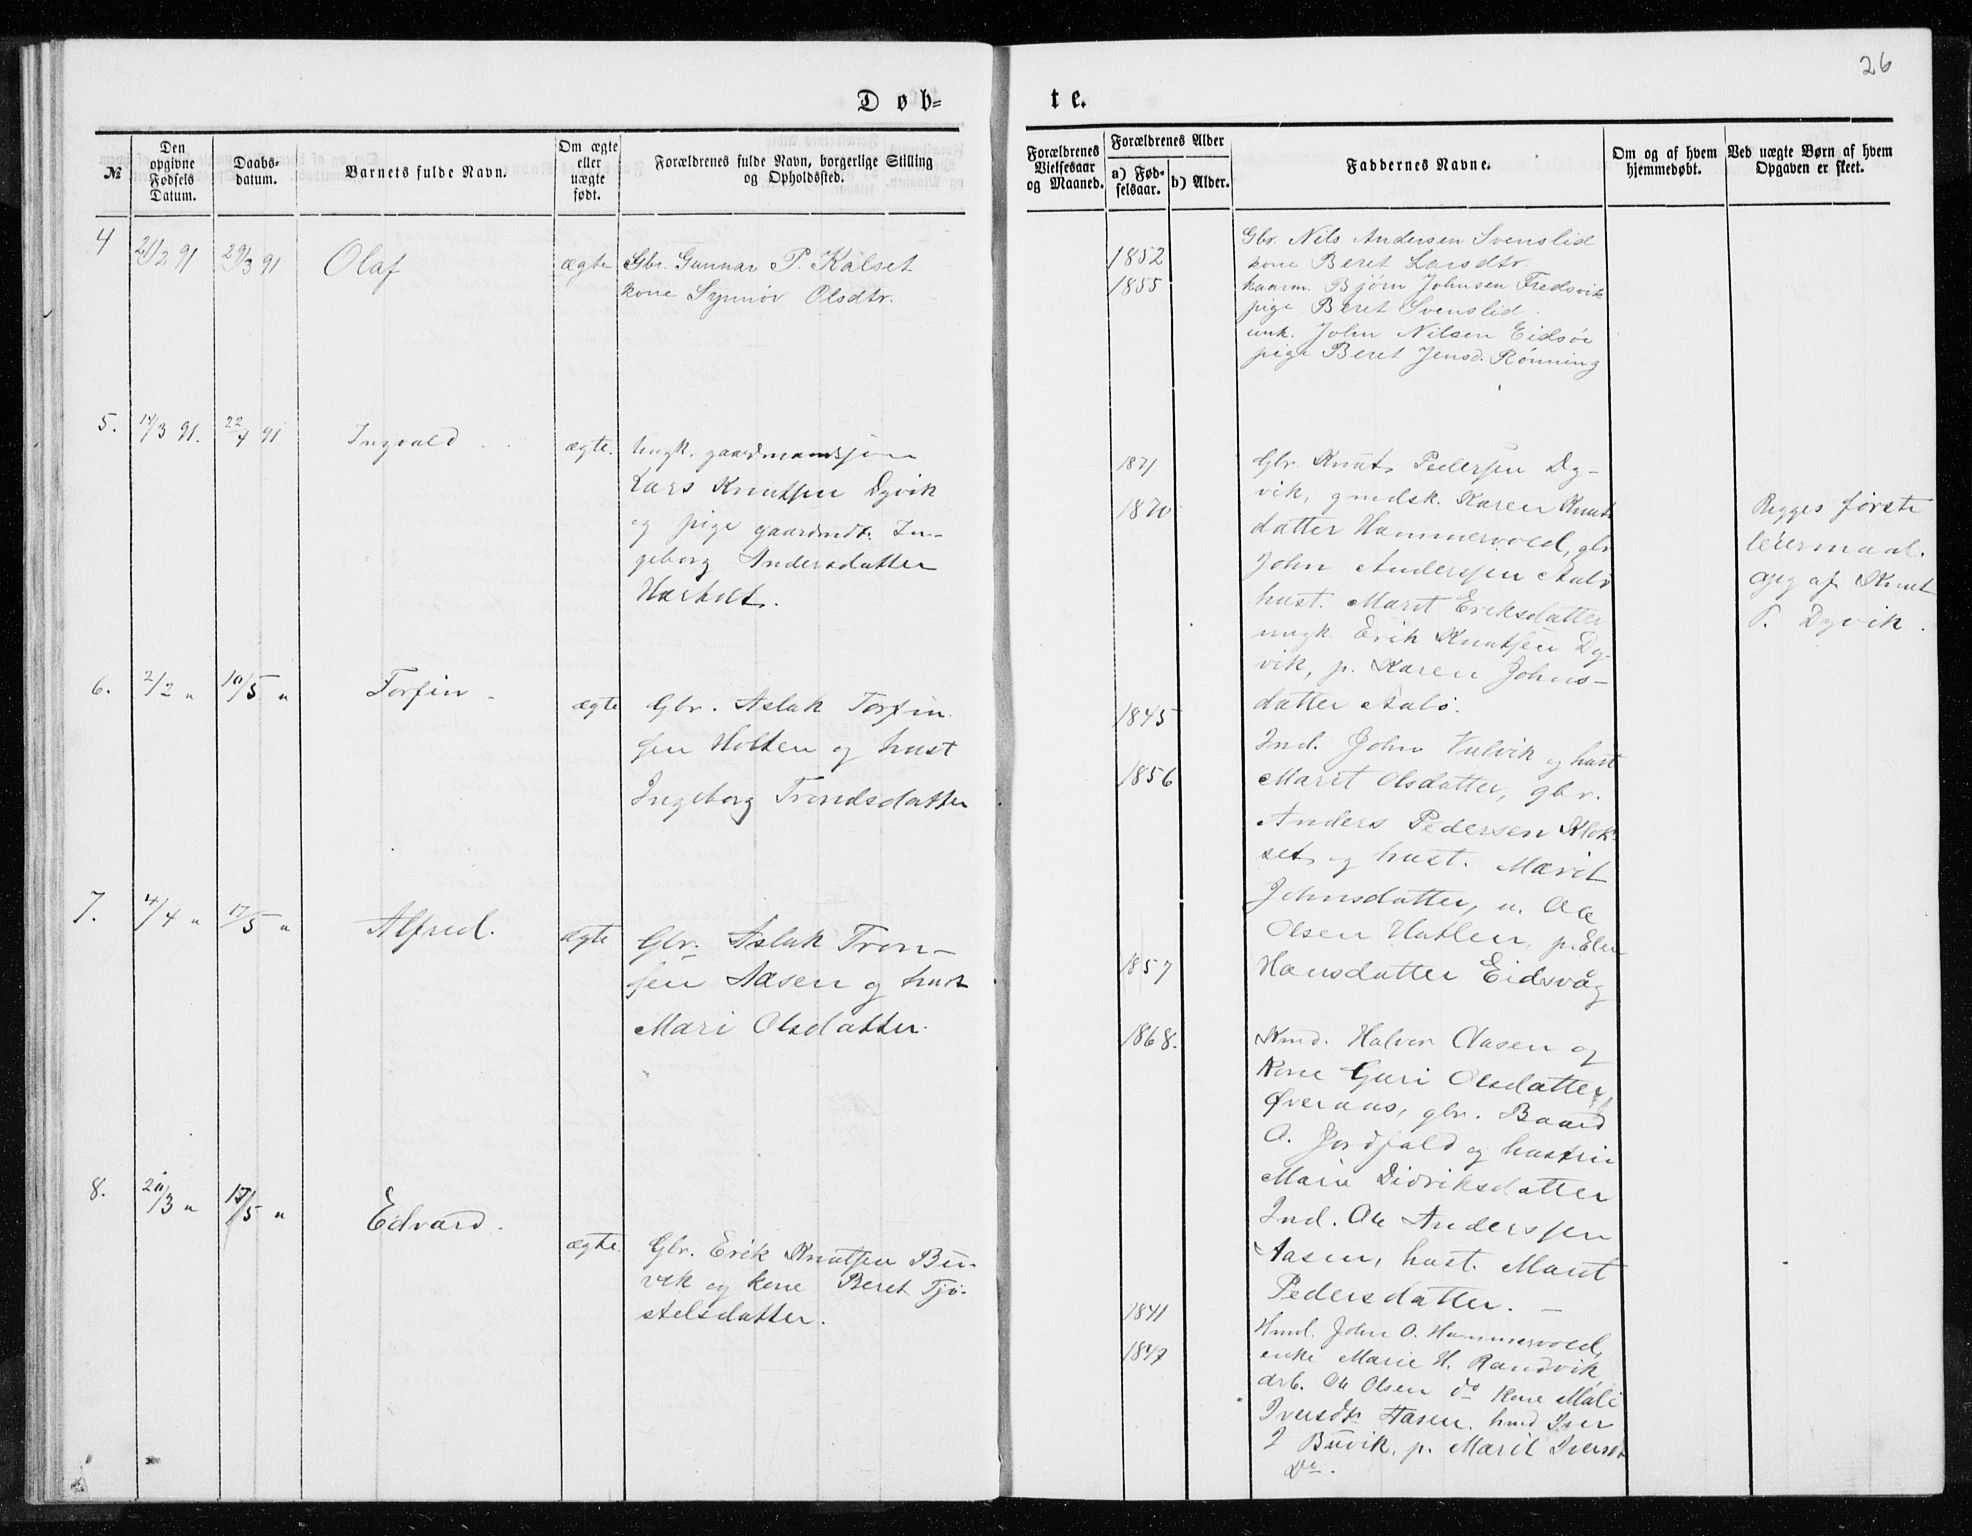 26
Døb=
te.
№
Den
opgivne
Fødsels
Datum.
Daabs-
datum.
Barnets fulde Navn.
Om ægte
eller
uægte
født.
Forældrenes fulde Navn, borgerlige Stilling
og Opholdssted.
Forældrenes
Vielsesaar
og Maaned.
Forældrenes Alder
a) Fød-
selsaar.
b) Alder.
Faddernes Navne.
Om og af hvem
hjemmedøbt.
Ved uægte Børn af hvem
Opgaven er skeet.
4
91
29/3 91
Olaf
ægte
Gbr. Gunnar P. Kalset
kone Synnøv Olsdtr.
1852
1855
Gbr. Nils Andersen Svenslid
kone Beret Larsdtr.
kaarm. Bjørn Johnsen Fredsvik
pige Beret Svenslid.
unk. John Nilsen Eidsøe
pige Beret Jensd. Rønning
5.
14/3 91.
22/4 91
Ingvald
ægte.
Ungk. gaardmandssøn
Lars Knutsen Dyvik
og pige gaardmdt. In-
geborg Andersdatter
1871
1870
Gbr. Knut Pedersen Dy-
vik, gmdsk. Karen Knuts
datter Hammervold, gbr
John Anderssen Aalø
hust. Marit Eriksdatter
ungk. Erik Knutsen Dy-
vik, p. Karen Johns-
datter Aalø.
Bygges første
leiermaal.
opg af Knut
P. Dyvik.
6.
2/2 "
10/5 "
Torfin
ægte
Gbr. Aslak Torfin
sen Holten og hust
Ingeborg Trondsdatter
1845
1856
Ind. John Vulvik og hust
Marit Olsdatter, gbr.
Anders Pedersen Klok-
set og hust. Marit
Johnsdatter, u. Ole
Olsen Hatlen, p. Elen
Hansdatter Eidsvåg
7.
4/4 "
17/5 "
Alfred.
ægte
Gbr. Aslak Tron-
sen Aasen og hust
Mari Olsdatter.
1857
1868.
Kmd. Halvor Aasen og
Kone Guri Olsdatter,
Øveraas, gbr. Baard
O. Jordfald og hustru
Marie Didriksdatter
Ind. Ole Anderssen
Aasen, hust. Marit
Pedersdatter. —
8.
20/3 "
17/5 "
Edvard.
ægte.
Gbr. Erik Knutsen Bu-
vik og kone Beret Tjø-
stelsdatter.
1841
1847
Hmd. John O. Hammervold,
enke Marie H. Randvik,
arb. Ole Olsen do Kone Mali
Iversdtr Aasen, hmd Iver
I Buvik, p. Marit Iversdt
Do.